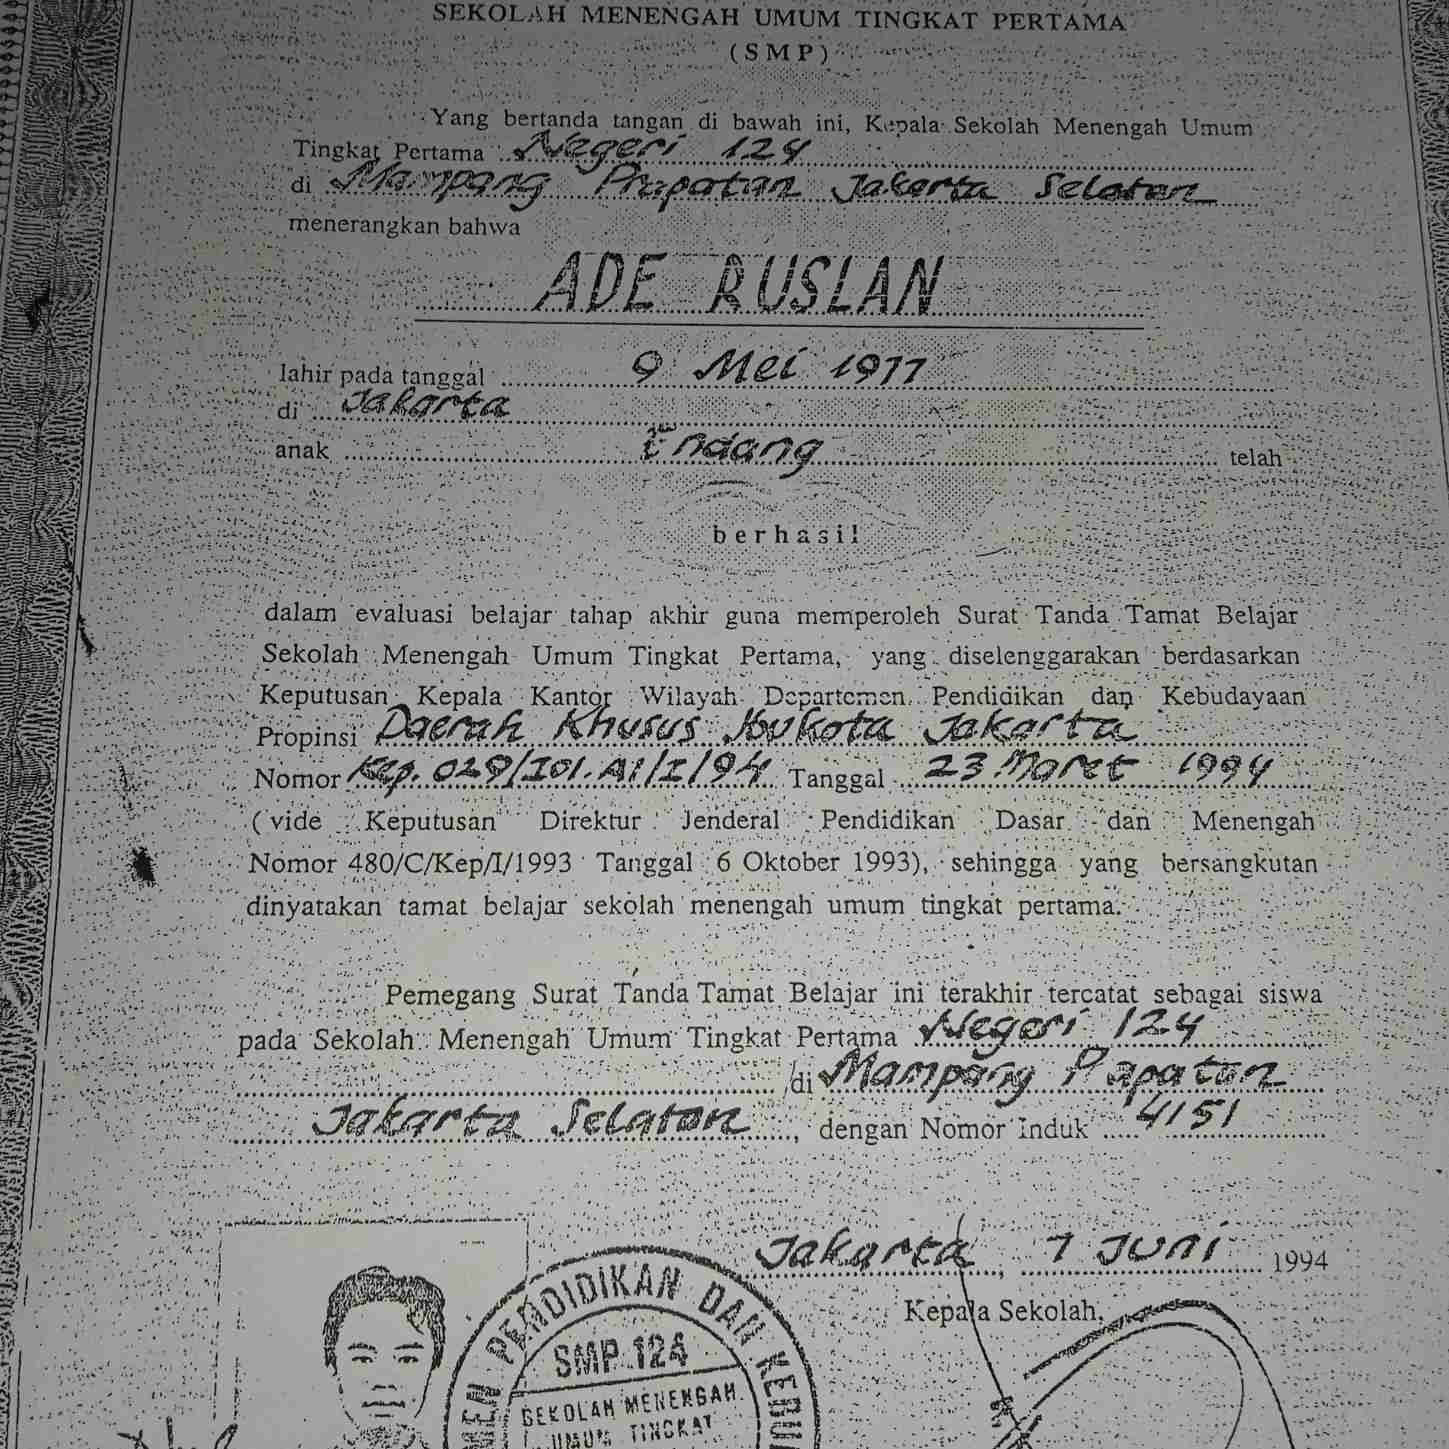 SEKOLAH MENENGAH UMUM TINGKAT PERTAMA
(SMP)
Yang bertanda tangan di bawah ini, Kepala Sekolah Menengah Umum
Tingkat Pertama Negeri 124
di Mampang Prapatan Jakarta Selatan
menerangkan bahwa
ADE RUSLAN
lahir pada tanggal 9 Mei 1977
di Jakarta
anak Endang telah
berhasil
dalam evaluasi belajar tahap akhir guna memperoleh Surat Tanda Tamat Belajar
Sekolah Menengah Umum Tingkat Pertama, yang diselenggarakan berdasarkan
Keputusan Kepala Kantor Wilayah Departemen Pendidikan dan Kebudayaan
Propinsi Daerah Khusus Ibukota Jakarta
Nomor Kep. 029/I01.A1/I/94 Tanggal 23 Maret 1994
(vide Keputusan Direktur Jenderal Pendidikan Dasar dan Menengah
Nomor 480/C/Kep/I/1993 Tanggal 6 Oktober 1993), sehingga yang bersangkutan
dinyatakan tamat belajar sekolah menengah umum tingkat pertama.
Pemegang Surat Tanda Tamat Belajar ini terakhir tercatat sebagai siswa
pada Sekolah Menengah Umum Tingkat Pertama Negeri 124
di Mampang Papatan
Jakarta Selatan, dengan Nomor Induk 4151
Jakarta, 7 Juni 1994
Kepala Sekolah,
PENDIDIKAN DAN
SMP 124
SEKOLAH MENENGAH
UMUM TINGKAT